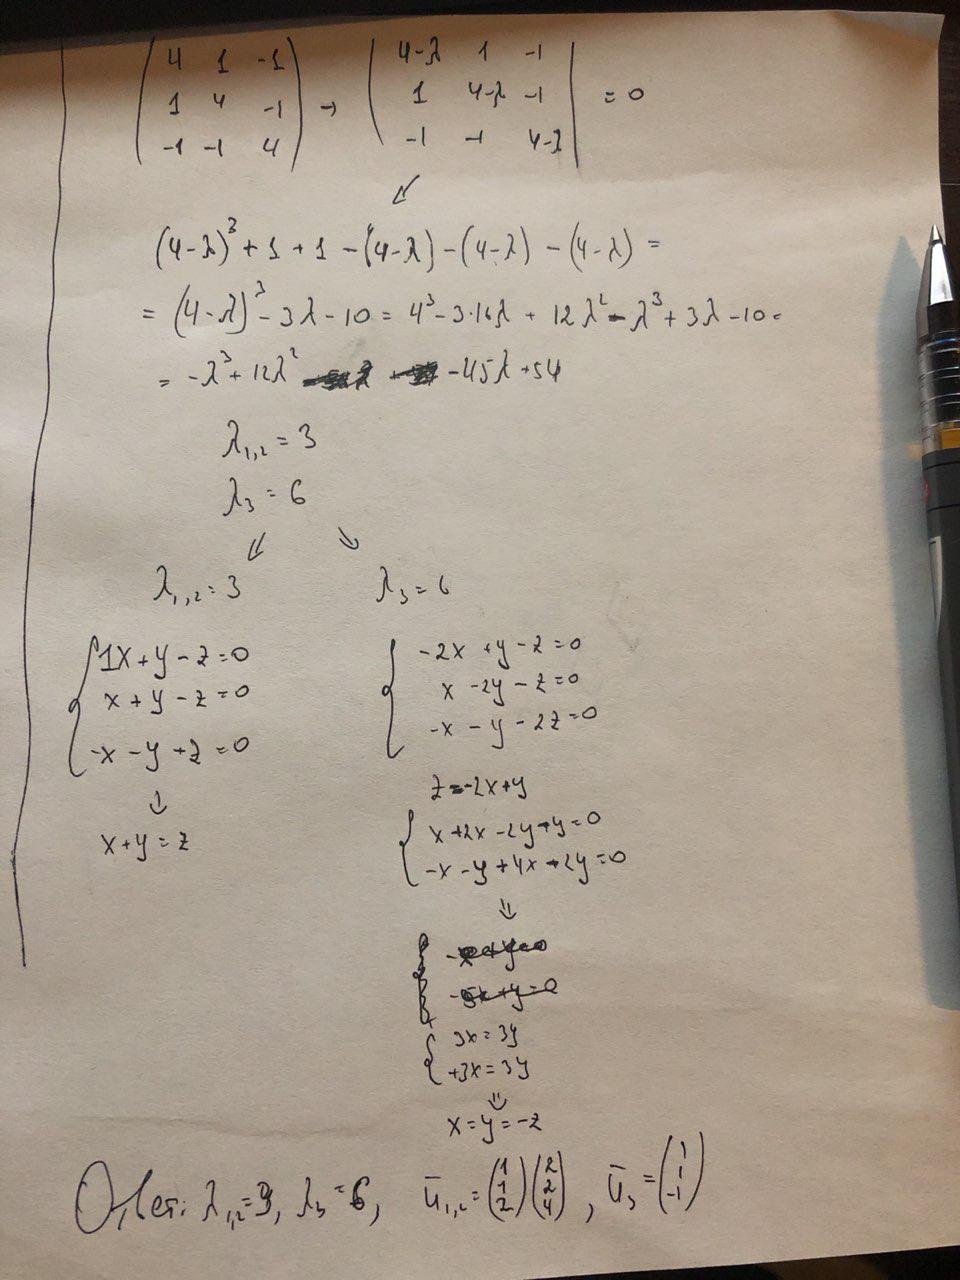 ( 4 1 -1 ) → | 4-λ 1 -1 |
( 1 4 -1 ) | 1 4-λ -1 | = 0
( -1 -1 4 ) | -1 -1 4-λ |
(4-λ)³ + 1 + 1 - (4-λ) - (4-λ) - (4-λ) =
= (4-λ)³ - 3λ - 10 = 4³ - 3·16λ + 12λ² - λ³ + 3λ - 10 =
= -λ³ + 12λ² - 45λ + 54
λ₁,₂ = 3
λ₃ = 6
⇙ ⇘
λ₁,₂ = 3 λ₃ = 6
{ 1x + y - z = 0
x + y - z = 0
-x - y + z = 0
⇓
x + y = z
{ -2x + y - z = 0
x - 2y - z = 0
-x - y - 2z = 0
z = -2x + y
{ x + 2x - 2y - y = 0
-x - y + 4x - 2y = 0
⇓
{ 3x = 3y
+3x = 3y
⇓
x = y = -z
Ответ: λ₁,₂ = 3, λ₃ = 6, ū₁,₂ = (1 1 2) (2 2 4), ū₃ = (1 1 -1)